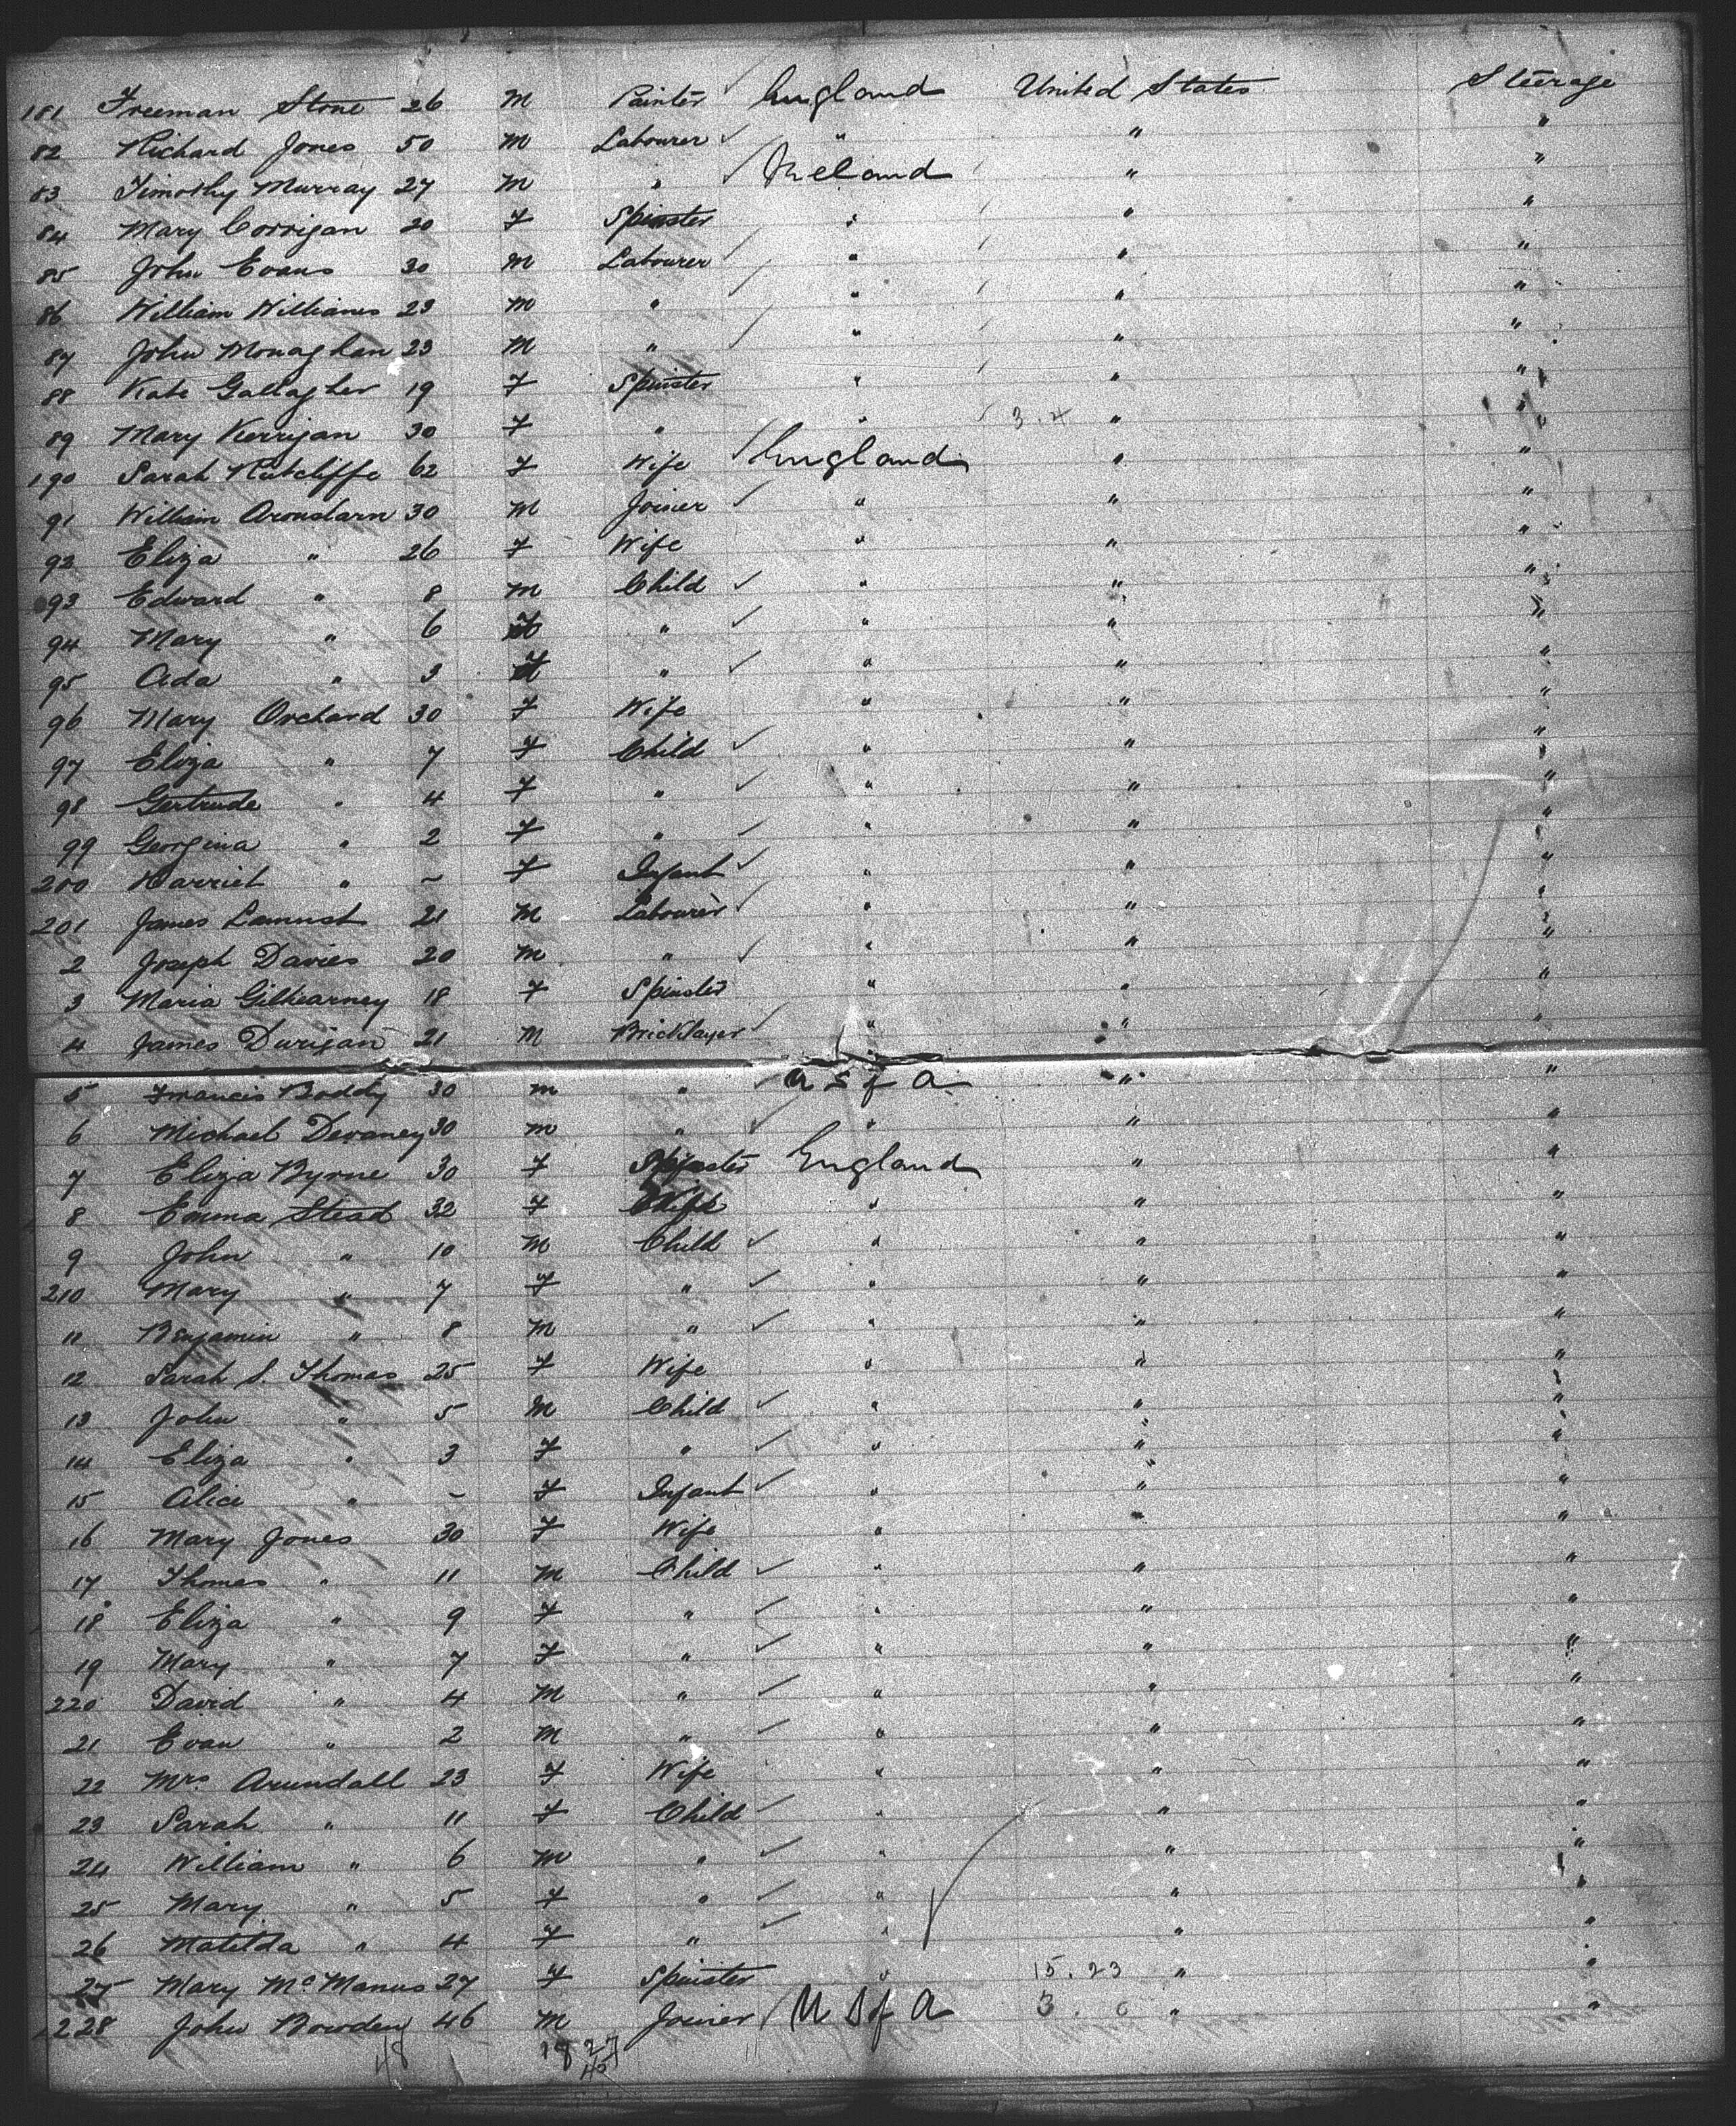 181 Freeman Stone 26 M Painter England United States Steerage
82 Richard Jones 50 M Labourer " " "
83 Timothy Murray 27 M " Ireland " "
84 Mary Corrigan 20 F Spinster " " "
85 John Evans 30 M Labourer " " "
86 William Williams 23 M " " " "
87 John Monaghan 23 M " " " "
88 Kate Gallagher 19 F Spinster " " "
89 Mary Kerrigan 30 F " " 3.4 " "
190 Sarah Sutcliffe 62 F Wife England " "
91 William 30 M Joiner " " "
92 Eliza " 26 F Wife " " "
93 Edward " 8 M Child " " "
94 Mary " 6 F " " " "
95 Ada " 3 F " " " "
96 Mary Orchard 30 F Wife " " "
97 Eliza " 7 F Child " " "
98 Gertrude " 4 F " " " "
99 Georgina " 2 F " " " "
200 Harriet " - F Infant " " "
201 James 21 M Labourer " " "
2 Joseph Davies 20 M " " " "
3 Maria Gilkearney 18 F Spinster " " "
4 James Durigan 21 M Bricklayer " " "
5 Francis Boddy 30 M " U S of A " "
6 Michael Devaney 30 M " " " "
7 Eliza Byrne 30 F Spinster England " "
8 Emma Stead 32 F Wife " " "
9 John " 10 M Child " " "
210 Mary " 7 F " " " "
11 Benjamin " 8 M " " " "
12 Sarah S. Thomas 25 F Wife " " "
13 John " 5 M Child " " "
14 Eliza " 3 F " " " "
15 Alice " - F Infant " " "
16 Mary Jones 30 F Wife " " "
17 Thomas " 11 M Child " " "
18 Eliza " 9 F " " " "
19 Mary " 7 F " " " "
220 David " 4 M " " " "
21 Evan " 2 M " " " "
22 Mrs Arundall 23 F Wife " " "
23 Sarah " 11 F Child " " "
24 William " 6 M " " " "
25 Mary " 5 F " " " "
26 Matilda " 4 F " " " "
27 Mary McManus 27 F Spinster " 15.23 " "
228 John Bowden 46 M Joiner U S of A 3. 0 " "
48 18 27